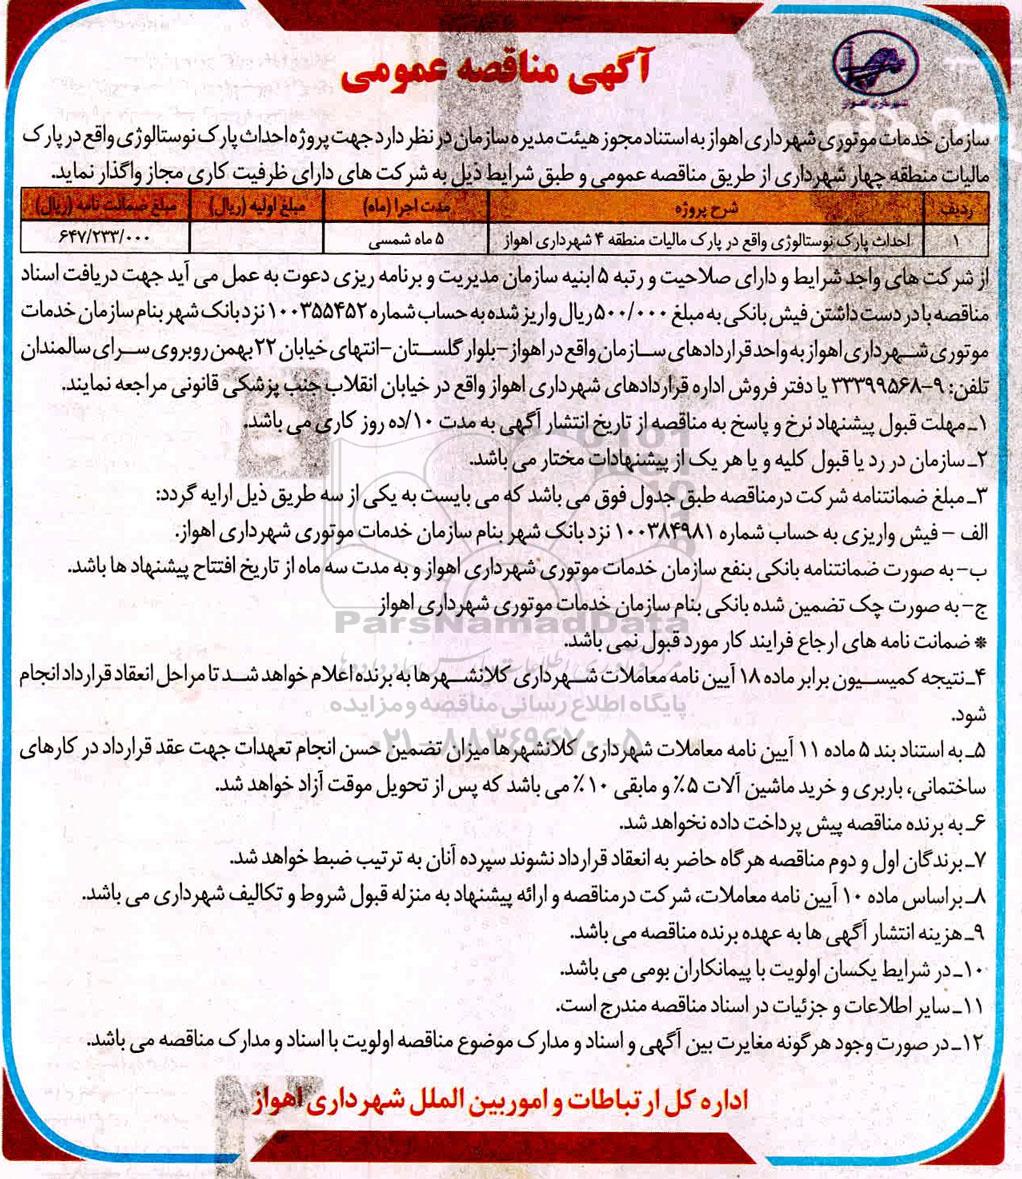 شهرداری اهواز
آگهی مناقصه عمومی
سازمان خدمات موتوری شهرداری اهواز به استناد مجوز هیئت مدیره سازمان در نظر دارد جهت پروژه احداث پارک نوستالوژی واقع در پارک
مالیات منطقه چهار شهرداری از طریق مناقصه عمومی و طبق شرایط ذیل به شرکت های دارای ظرفیت کاری مجاز واگذار نماید.
ردیف شرح پروژه مدت اجرا (ماه) مبلغ اولیه (ریال) مبلغ ضمانت نامه (ریال)
۱ احداث پارک نوستالوژی واقع در پارک مالیات منطقه ۴ شهرداری اهواز ۵ ماه شمسی ۶۴۷/۲۳۳/۰۰۰
از شرکت های واجد شرایط و دارای صلاحیت و رتبه ۵ ابنیه سازمان مدیریت و برنامه ریزی دعوت به عمل می آید جهت دریافت اسناد
مناقصه با در دست داشتن فیش بانکی به مبلغ ۵۰۰/۰۰۰ ریال واریز شده به حساب شماره ۱۰۰۳۵۵۴۵۲ نزد بانک شهر بنام سازمان خدمات
موتوری شهرداری اهواز به واحد قراردادهای سازمان واقع در اهواز - بلوار گلستان - انتهای خیابان ۲۲ بهمن روبروی سرای سالمندان
تلفن: ۹-۳۳۳۹۹۵۶۸ یا دفتر فروش اداره قراردادهای شهرداری اهواز واقع در خیابان انقلاب جنب پزشکی قانونی مراجعه نمایند.
۱ـ مهلت قبول پیشنهاد نرخ و پاسخ به مناقصه از تاریخ انتشار آگهی به مدت ۱۰/ده روز کاری می باشد.
۲ـ سازمان در رد یا قبول کلیه و یا هر یک از پیشنهادات مختار می باشد.
۳ـ مبلغ ضمانتنامه شرکت در مناقصه طبق جدول فوق می باشد که می بایست به یکی از سه طریق ذیل ارایه گردد:
الف - فیش واریزی به حساب شماره ۱۰۰۳۸۴۹۸۱ نزد بانک شهر بنام سازمان خدمات موتوری شهرداری اهواز.
ب- به صورت ضمانتنامه بانکی بنفع سازمان خدمات موتوری شهرداری اهواز و به مدت سه ماه از تاریخ افتتاح پیشنهاد ها باشد.
ج- به صورت چک تضمین شده بانکی بنام سازمان خدمات موتوری شهرداری اهواز
ParsNamadData
* ضمانت نامه های ارجاع فرایند کار مورد قبول نمی باشد.
۴ـ نتیجه کمیسیون برابر ماده ۱۸ آیین نامه معاملات شهرداری کلانشهرها به برنده اعلام خواهد شد تا مراحل انعقاد قرارداد انجام
پایگاه اطلاع رسانی مناقصه و مزایده
شود.
۰۲۱-۸۸۳۴۹۶۷۰-۵
۵ـ به استناد بند ۵ ماده ۱۱ آیین نامه معاملات شهرداری کلانشهرها میزان تضمین حسن انجام تعهدات جهت عقد قرارداد در کارهای
ساختمانی، باربری و خرید ماشین آلات ۵٪ و مابقی ۱۰٪ می باشد که پس از تحویل موقت آزاد خواهد شد.
۶ـ به برنده مناقصه پیش پرداخت داده نخواهد شد.
۷ـ برندگان اول و دوم مناقصه هرگاه حاضر به انعقاد قرارداد نشوند سپرده آنان به ترتیب ضبط خواهد شد.
۸ـ براساس ماده ۱۰ آیین نامه معاملات، شرکت در مناقصه و ارائه پیشنهاد به منزله قبول شروط و تکالیف شهرداری می باشد.
۹ـ هزینه انتشار آگهی ها به عهده برنده مناقصه می باشد.
۱۰ـ در شرایط یکسان اولویت با پیمانکاران بومی می باشد.
۱۱ـ سایر اطلاعات و جزئیات در اسناد مناقصه مندرج است.
۱۲ـ در صورت وجود هرگونه مغایرت بین آگهی و اسناد و مدارک موضوع مناقصه اولویت با اسناد و مدارک مناقصه می باشد.
اداره کل ارتباطات و امور بین الملل شهرداری اهواز